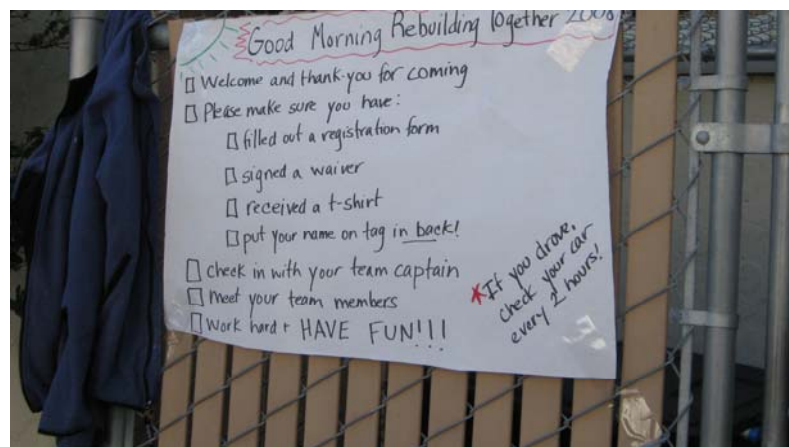 Good Morning Rebuilding Together 2008
Welcome and thank-you for coming
Please make sure you have:
filled out a registration form
signed a waiver
received a t-shirt
put your name on tag in back!
check in with your team captain
Meet your team members
Work hard + HAVE FUN!!!
*If you drove,
check your car
every 2 hours!